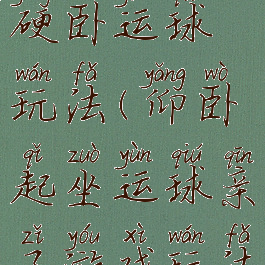 硬卧运球
wán fǎ yǎng wò
玩法(仰卧
qǐ zuò yùn qiú qīn
起坐运球亲
zǐ yóu xì wán fǎ
子游戏玩法